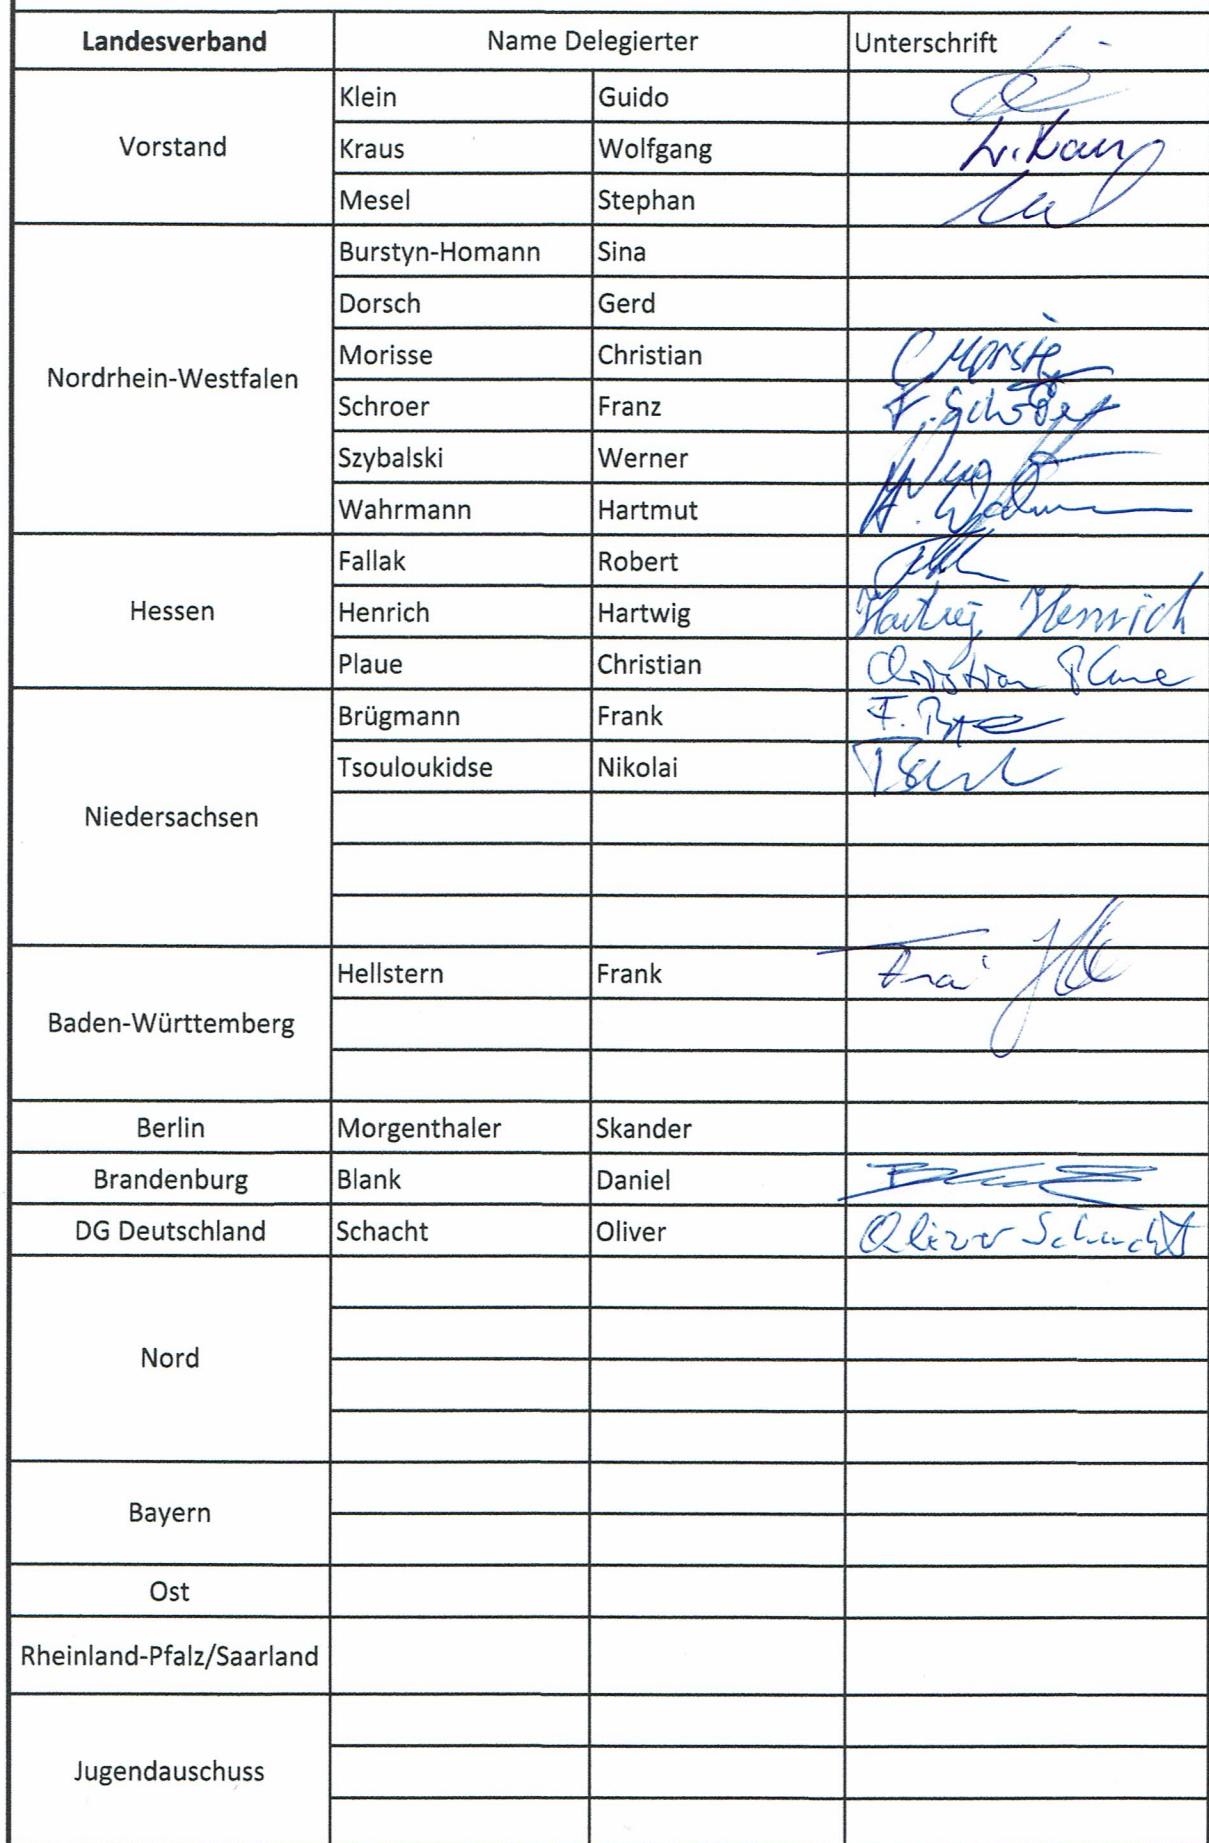 Landesverband Name Delegierter Unterschrift
Vorstand
Klein Guido
Kraus Wolfgang W. Kraus
Mesel Stephan
Nordrhein-Westfalen
Burstyn-Homann Sina
Dorsch Gerd
Morisse Christian C Morisse
Schroer Franz F. Schröer
Szybalski Werner
Wahrmann Hartmut H. Wahrmann
Hessen
Fallak Robert
Henrich Hartwig Hartwig Henrich
Plaue Christian Christian Plaue
Niedersachsen
Brügmann Frank
Tsouloukidse Nikolai
Baden-Württemberg
Hellstern Frank
Berlin Morgenthaler Skander
Brandenburg Blank Daniel
DG Deutschland Schacht Oliver Oliver Schacht
Nord
Bayern
Ost
Rheinland-Pfalz/Saarland
Jugendauschuss